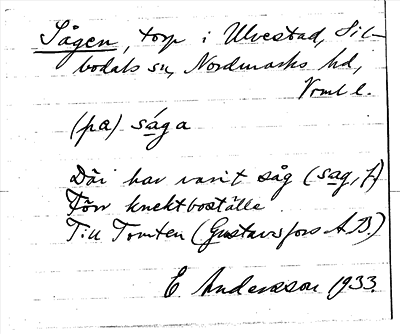 Sågen, torp i Ulvestad, Sil-
bodals sn, Nordmarks hd,
Vrml l.
(pa) sága
Där har varit såg (sag, f)
Förr knektboställe.
Till Tomten (Gustavsfors A.B.)
E. Andersson 1933.